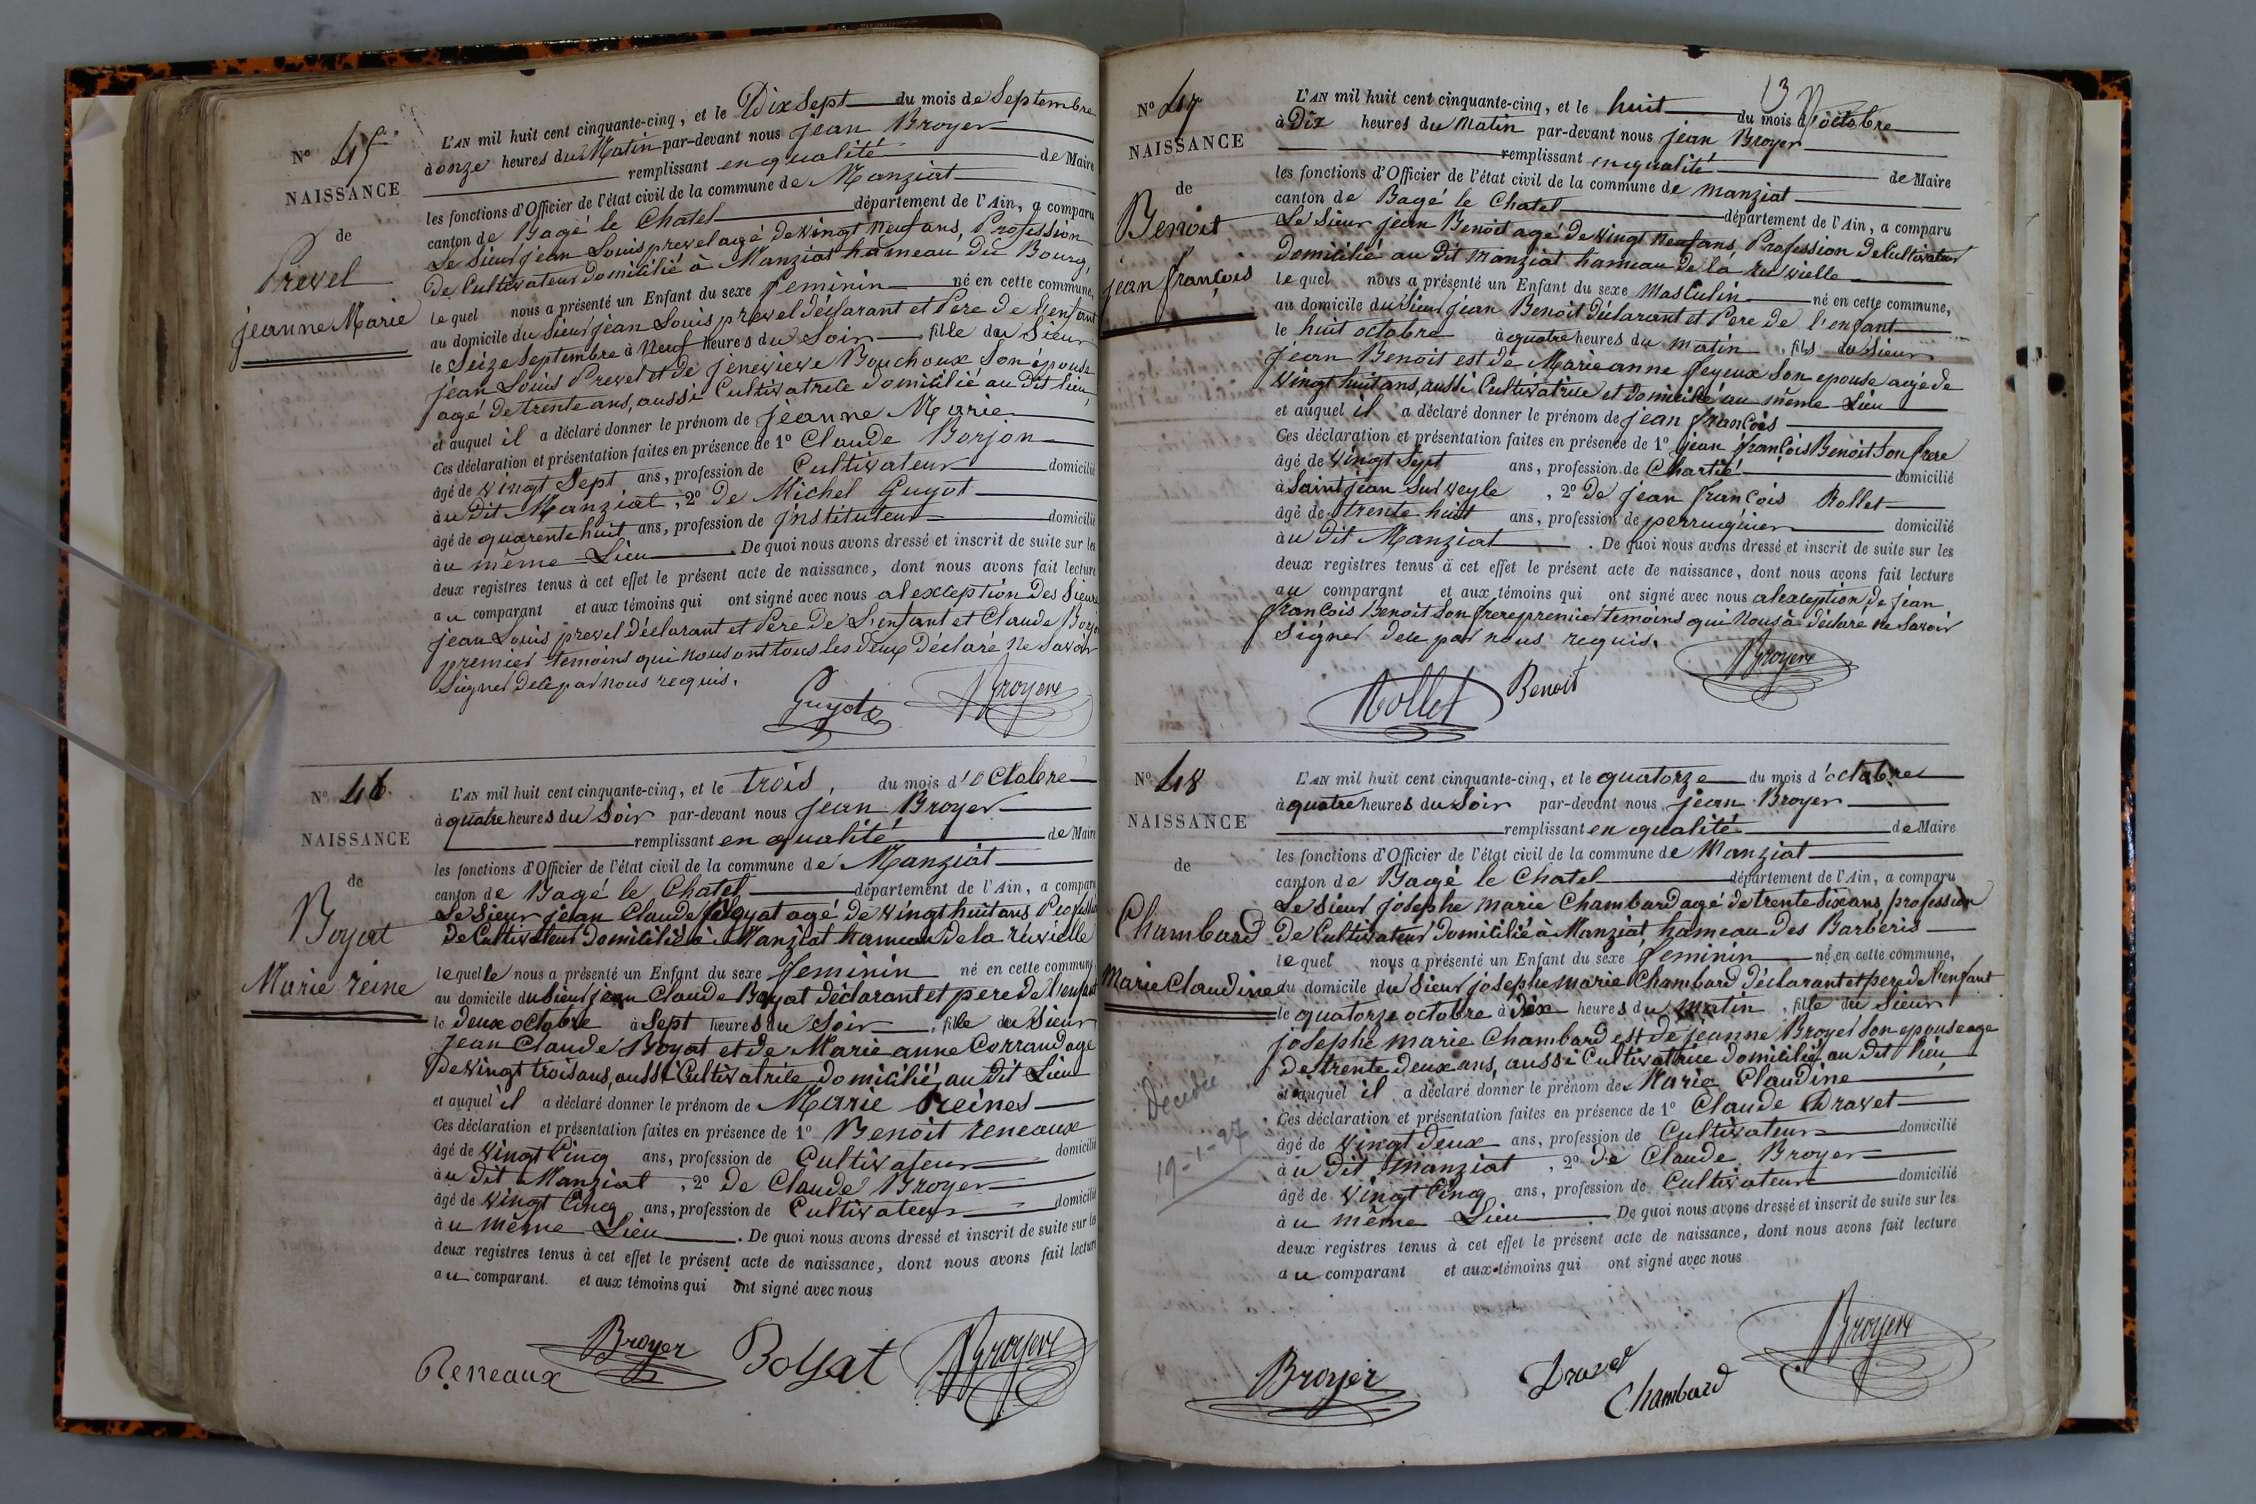 N° 45
NAISSANCE
de
Prevel
jeanne Marie
L'AN mil huit cent cinquante-cinq, et le Dix Sept du mois de Septembre
à onze heures du Matin par-devant nous jean Broyer
remplissant en qualité de Maire
les fonctions d'Officier de l'état civil de la commune de Manziat
canton de Bagé le Chatel département de l'Ain, a comparu
Le Sieur jean Louis prevel agé de vingt neuf ans, Profession
De Cultivateur domicilié à Manziat hameau du Bourg,
le quel nous a présenté un Enfant du sexe feminin né en cette commune,
au domicile du Sieur jean Louis prevel déclarant et Pere de l'enfant
le Seize Septembre à Neuf heures du Soir fille du Sieur
jean Louis Prevel et de jenevieve Bouchoux Son épouse
agé de trente ans, aussi Cultivatrice domicilié au Dit lieu,
et auquel il a déclaré donner le prénom de jeanne Marie
Ces déclaration et présentation faites en présence de 1° Claude Borjon
âgé de vingt Sept ans, profession de Cultivateur domicilié
à u Dit Manziat, 2° de Michel Guyot
âgé de quarente huit ans, profession de jnstituteur domicilié
à u même Lieu. De quoi nous avons dressé et inscrit de suite sur les
deux registres tenus à cet effet le présent acte de naissance, dont nous avons fait lecture
a u comparant et aux témoins qui ont signé avec nous al exception Des Sieurs
jean Louis prevel déclarant et Pere De L'enfant et Claude Borjon
premier temoins qui nous ont tous les deux Déclaré Ne Savoir
Signer de ce par nous requis.
Guyot Broyer
N° 46
NAISSANCE
de
Boyat
Marie reine
L'AN mil huit cent cinquante-cinq, et le trois, du mois d'octobre
à quatre heures du Soir par-devant nous jean Broyer
remplissant en qualité de Maire
les fonctions d'Officier de l'état civil de la commune de Manziat
canton de Bagé le Chatel département de l'Ain, a comparu
Le Sieur jean Claude Boyat agé de vingt huit ans Profession
De Cultivateur Domicilié à Manziat hameau De la ruvielle
le quel le nous a présenté un Enfant du sexe feminin né en cette commune,
au domicile du Sieur jean Claude Boyat déclarant et pere de l'enfant
le deux octobre à Sept heures du Soir, fille du Sieur
jean Claude Boyat et de Marie anne Corraud agé
De vingt trois ans, aussi Cultivatrice domicilié au Dit Lieu
et auquel il a déclaré donner le prénom de Marie reines
Ces déclaration et présentation faites en présence de 1° Benoit reneaux
âgé de vingt Cinq ans, profession de Cultivateur domicilié
à u Dit Manziat, 2° de Claude Broyer
âgé de vingt Cinq ans, profession de Cultivateur domicilié
à u même Lieu. De quoi nous avons dressé et inscrit de suite sur les
deux registres tenus à cet effet le présent acte de naissance, dont nous avons fait lecture
a u comparant. et aux témoins qui ont signé avec nous
Reneaux Broyer Boyat Broyer
13
N° 47
NAISSANCE
de
Benoit
jean françois
L'AN mil huit cent cinquante-cinq, et le huit du mois d'octobre
à Dix heures du Matin par-devant nous jean Broyer
remplissant en qualité de Maire
les fonctions d'Officier de l'état civil de la commune de manziat
canton de Bagé le Chatel département de l'Ain, a comparu
Le Sieur jean Benoit agé de vingt neuf ans Profession de Cultivateur
Domicilié au Dit Manziat hameau de la ruvielle
le quel nous a présenté un Enfant du sexe Masculin né en cette commune,
au domicile du Sieur jean Benoit déclarant et Pere de l'enfant
le huit octobre à quatre heures du matin, fils du Sieur
jean Benoit est de Marie anne feyeux Son epouse agé de
vingt huit ans, aussi Cultivatrice et domicilié au même Lieu
et auquel il a déclaré donner le prénom de jean françois
Ces déclaration et présentation faites en présence de 1° jean françois Benoit Son frere
âgé de vingt Sept ans, profession de Chartié domicilié
à Saint jean Sur veyle, 2° de jean françois Rollet
âgé de trente huit ans, profession de perruquier domicilié
à u Dit Manziat. De quoi nous avons dressé et inscrit de suite sur les
deux registres tenus à cet effet le présent acte de naissance, dont nous avons fait lecture
au comparant et aux témoins qui ont signé avec nous al exception de jean
françois Benoit Son frere premier temoins qui Nous à déclaré ne Savoir
Signer de ce par nous requis.
Rollet Benoit Broyer
N° 48
NAISSANCE
de
Chambard
Marie Claudine
Décédée
19-1-27
L'AN mil huit cent cinquante-cinq, et le quatorze du mois d'octobre
à quatre heures du Soir par-devant nous jean Broyer
remplissant en qualité de Maire
les fonctions d'Officier de l'état civil de la commune de Manziat
canton de Bagé le Chatel département de l'Ain, a comparu
Le Sieur josephe marie Chambard agé de trente Six ans profession
De Cultivateur Domicilié à Manziat hameau des Barberis
le quel nous a présenté un Enfant du sexe feminin né en cette commune,
au domicile du Sieur josephe marie Chambard déclarant et pere de l'enfant
le quatorze octobre à dix heures du matin, fille du Sieur
josephe marie Chambard est de jeanne Broyer Son epouse agé
de trente deux ans, aussi Cultivatrice domicilié au dit lieu
et auquel il a déclaré donner le prénom de Marie Claudine
Ces déclaration et présentation faites en présence de 1° Claude Dravet
âgé de vingt deux ans, profession de Cultivateur domicilié
à u Dit Manziat, 2° de Claude Broyer
âgé de vingt Cinq ans, profession de Cultivateur domicilié
à u même Lieu. De quoi nous avons dressé et inscrit de suite sur les
deux registres tenus à cet effet le présent acte de naissance, dont nous avons fait lecture
a u comparant et aux témoins qui ont signé avec nous
Broyer Dravet Chambard Broyer